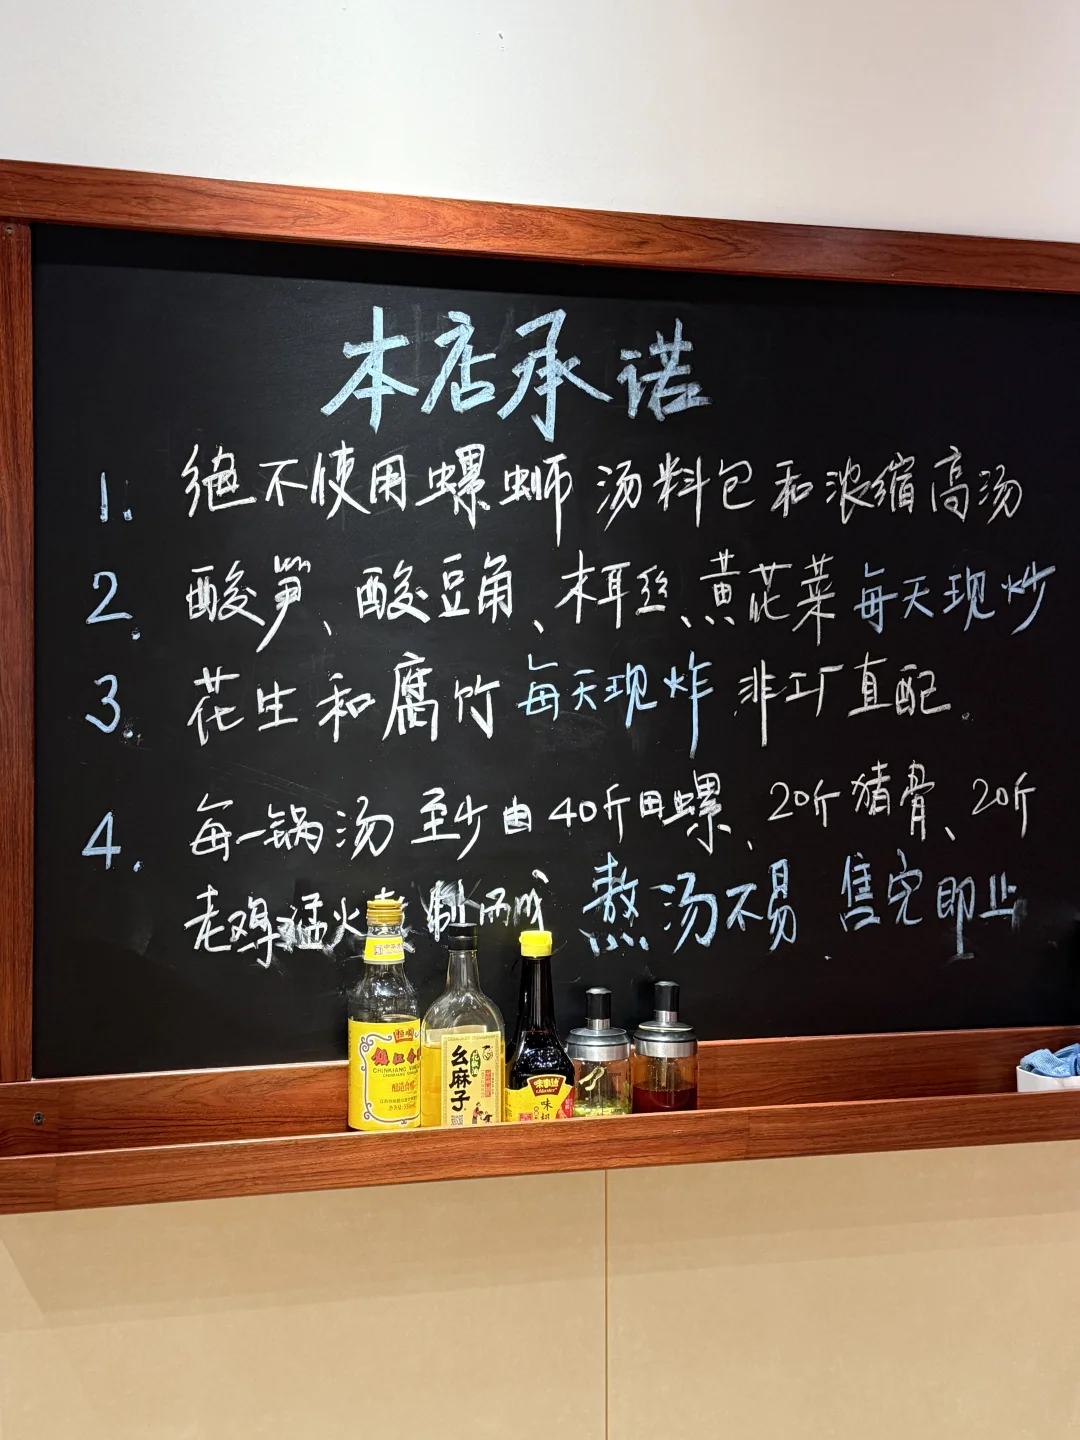 本店承诺
1. 绝不使用螺蛳汤料包和浓缩高汤
2. 酸笋、酸豆角、木耳丝、黄花菜每天现炒
3. 花生和腐竹每天现炸 非工厂直配。
4. 每一锅汤至少由40斤田螺、20斤猪骨、20斤
老鸡猛火 制而成 熬汤不易 售完即止
恒顺
镇江香
CHINKIANG
酿造食醋
幺麻子
味事达
味